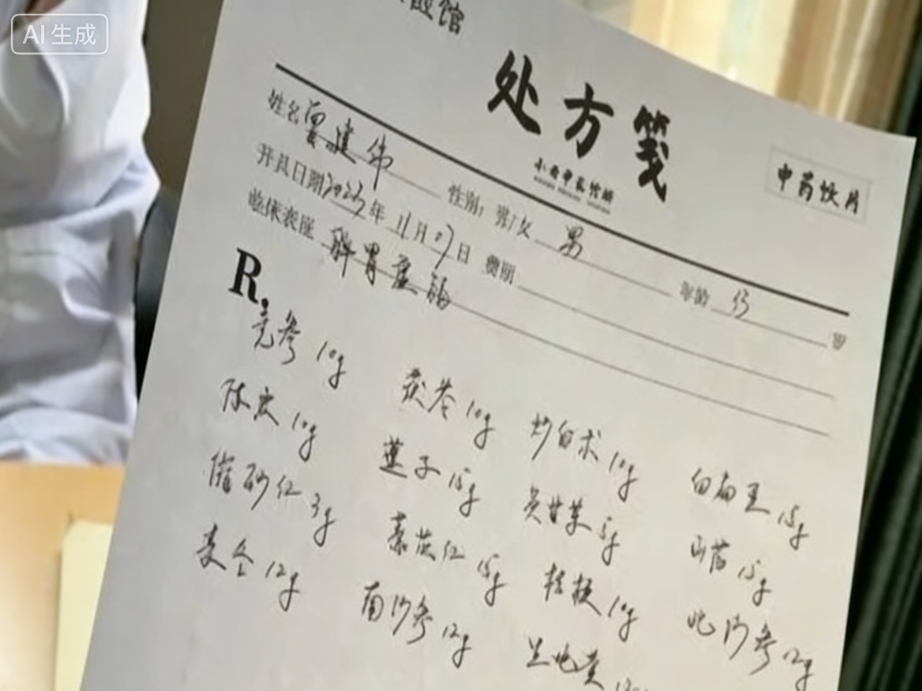 AI生成
医馆
处方笺
中药饮片
姓名 建伟 性别：男/女 男 年龄 岁
开具日期2023年11月07日 费别
临床表症 脾胃虚弱
R.
党参10g 茯苓10g 炒白术10g 白扁豆15g
陈皮10g 莲子15g 炙甘草5g 山药15g
砂仁3g 薏苡仁15g 桔梗10g 北沙参12g
麦冬12g 南沙参12g 生地黄